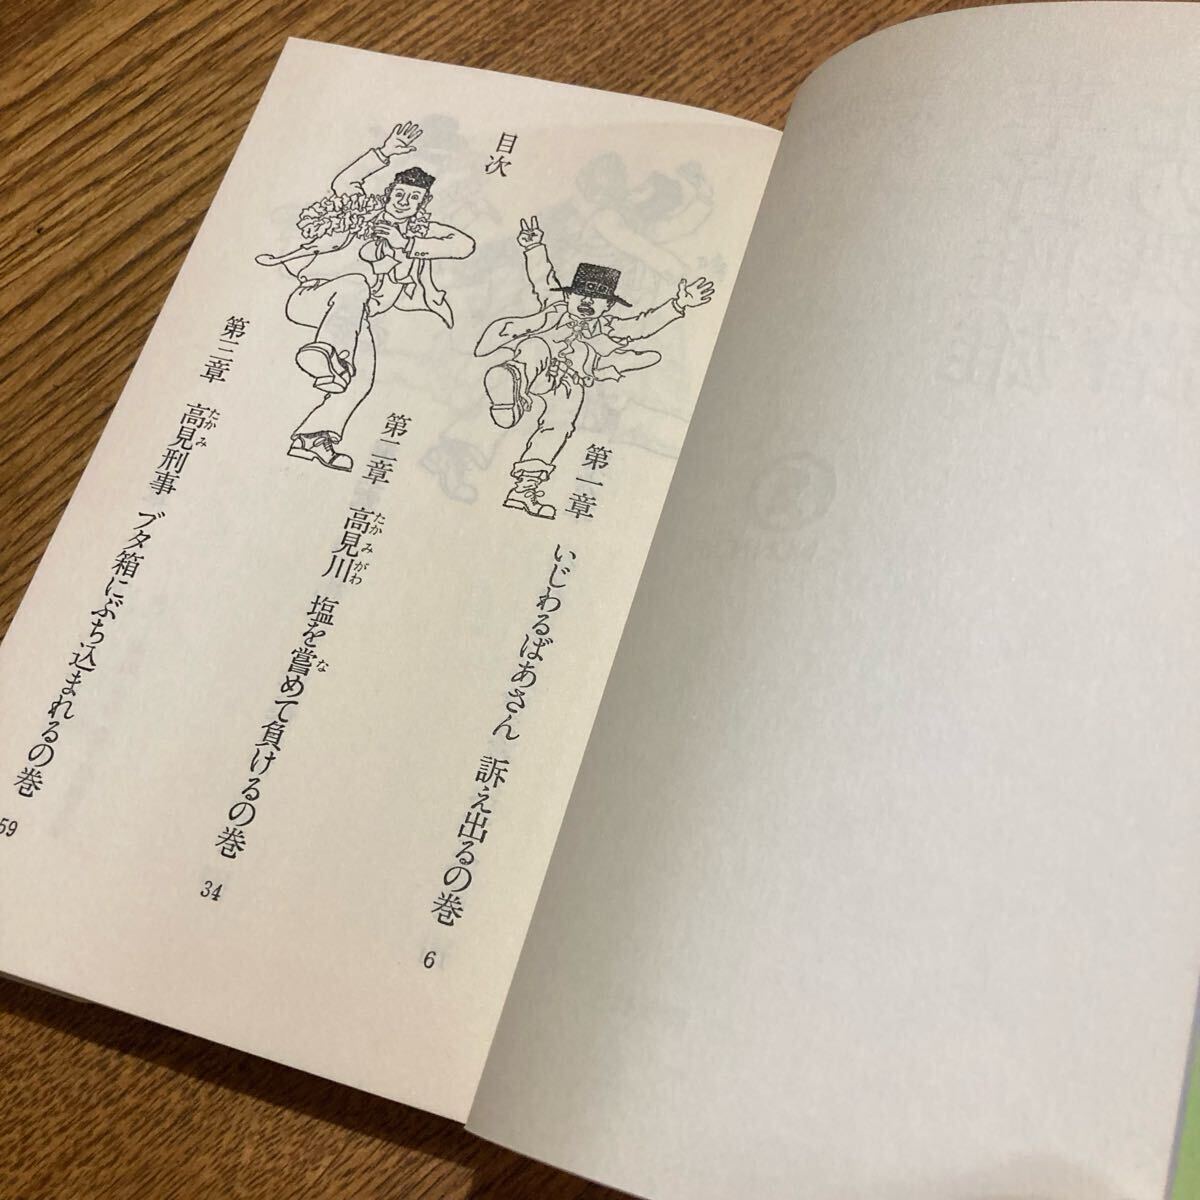 目次
第一章　いじわるばあさん　訴え出るの巻　6
第二章　高見川　塩を嘗めて負けるの巻　34
第三章　高見刑事　ブタ箱にぶち込まれるの巻　59